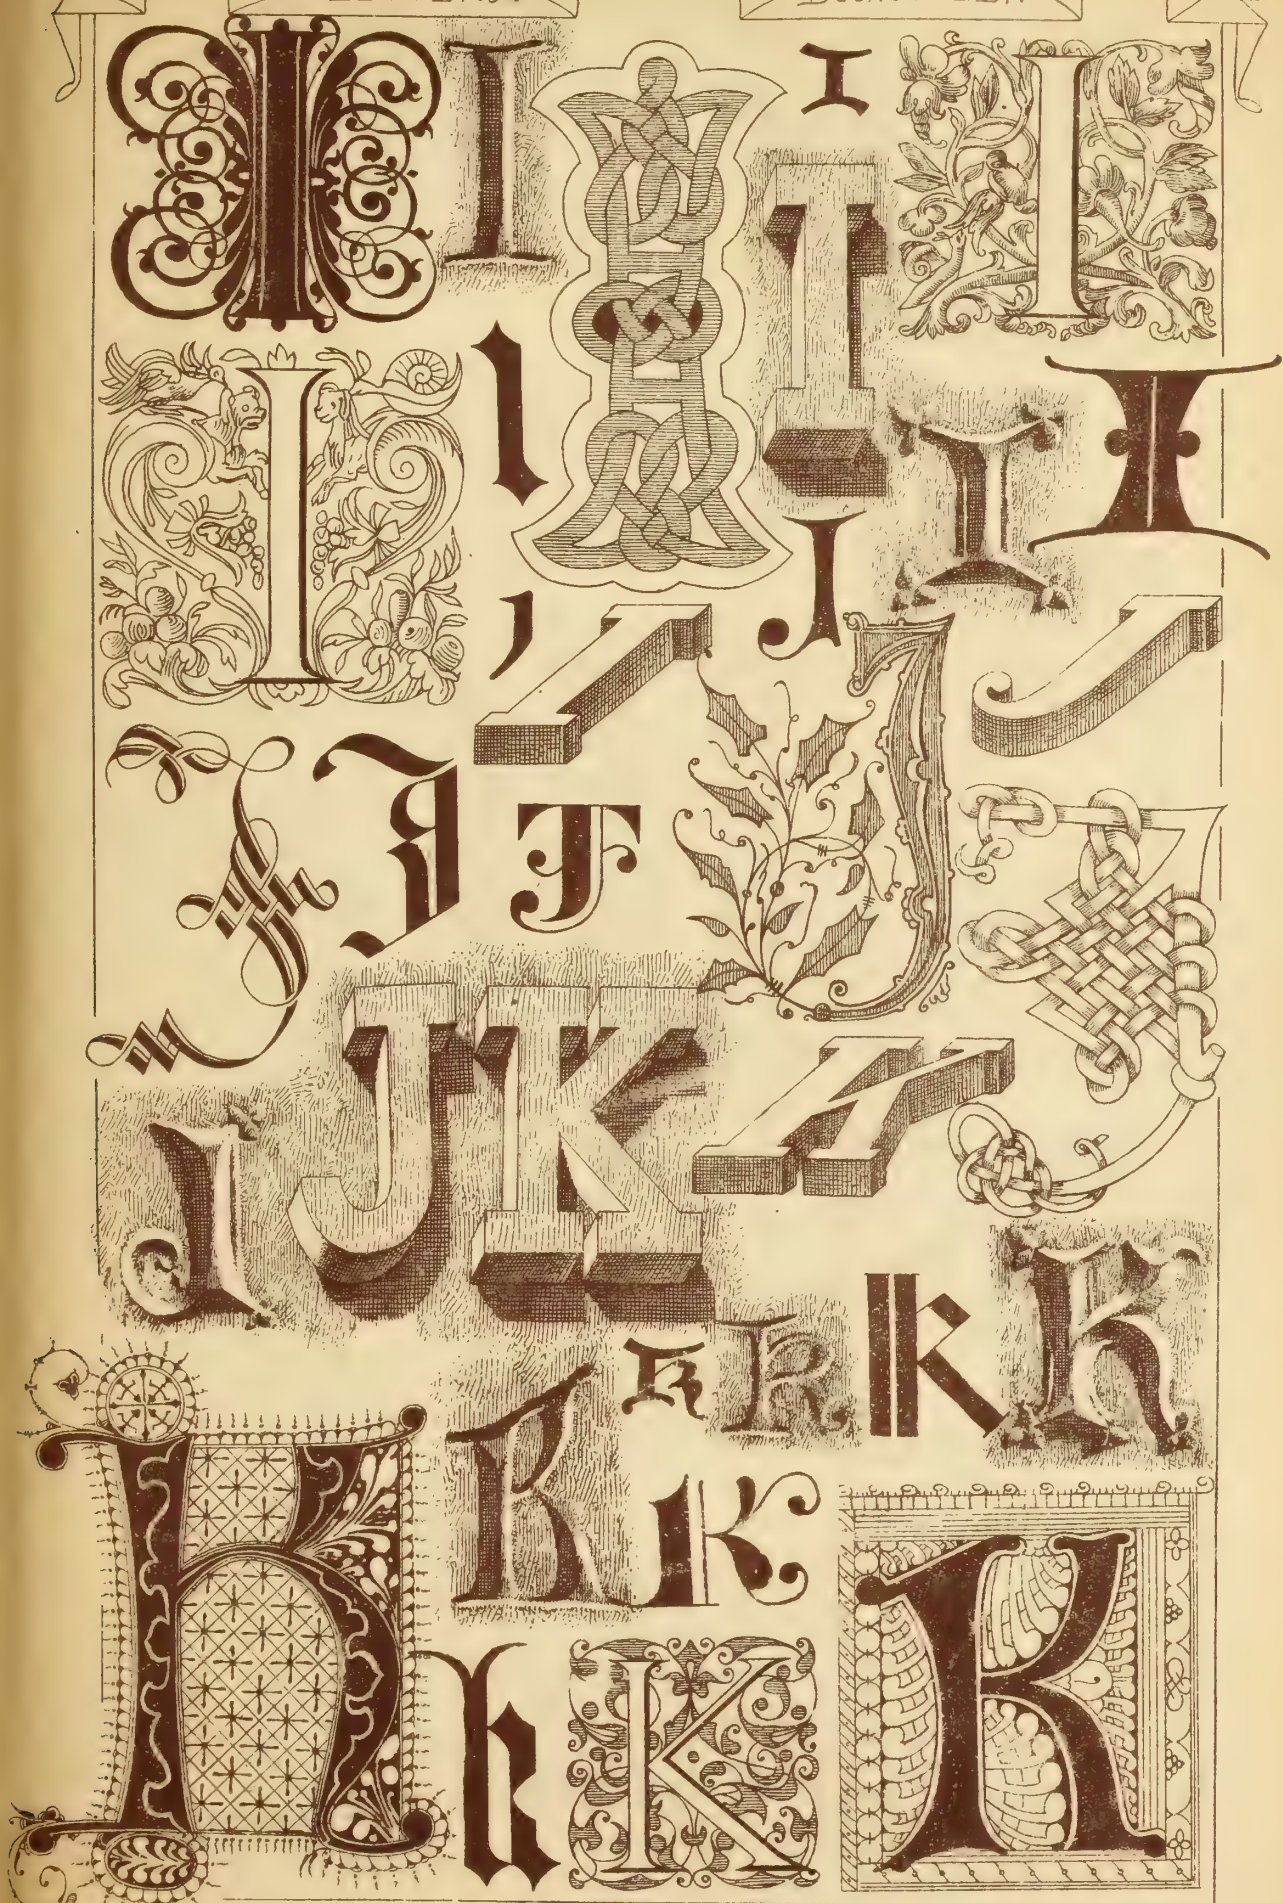 I I I I I
I I I I I
J
, I J J
J J J J J
J K K
J
K K K K
K K K
K k K K